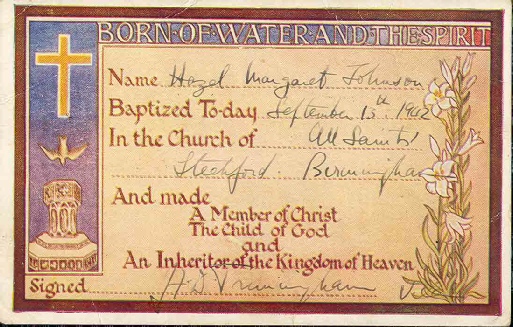 BORN·OF·WATER·AND·THE·SPIRIT
Name Hazel Margaret Johnson
Baptized To-day September 13th 1942
In the Church of All Saints'
Stechford. Birmingham
And made
A Member of Christ
The Child of God
and
An Inheritor of the Kingdom of Heaven
Signed